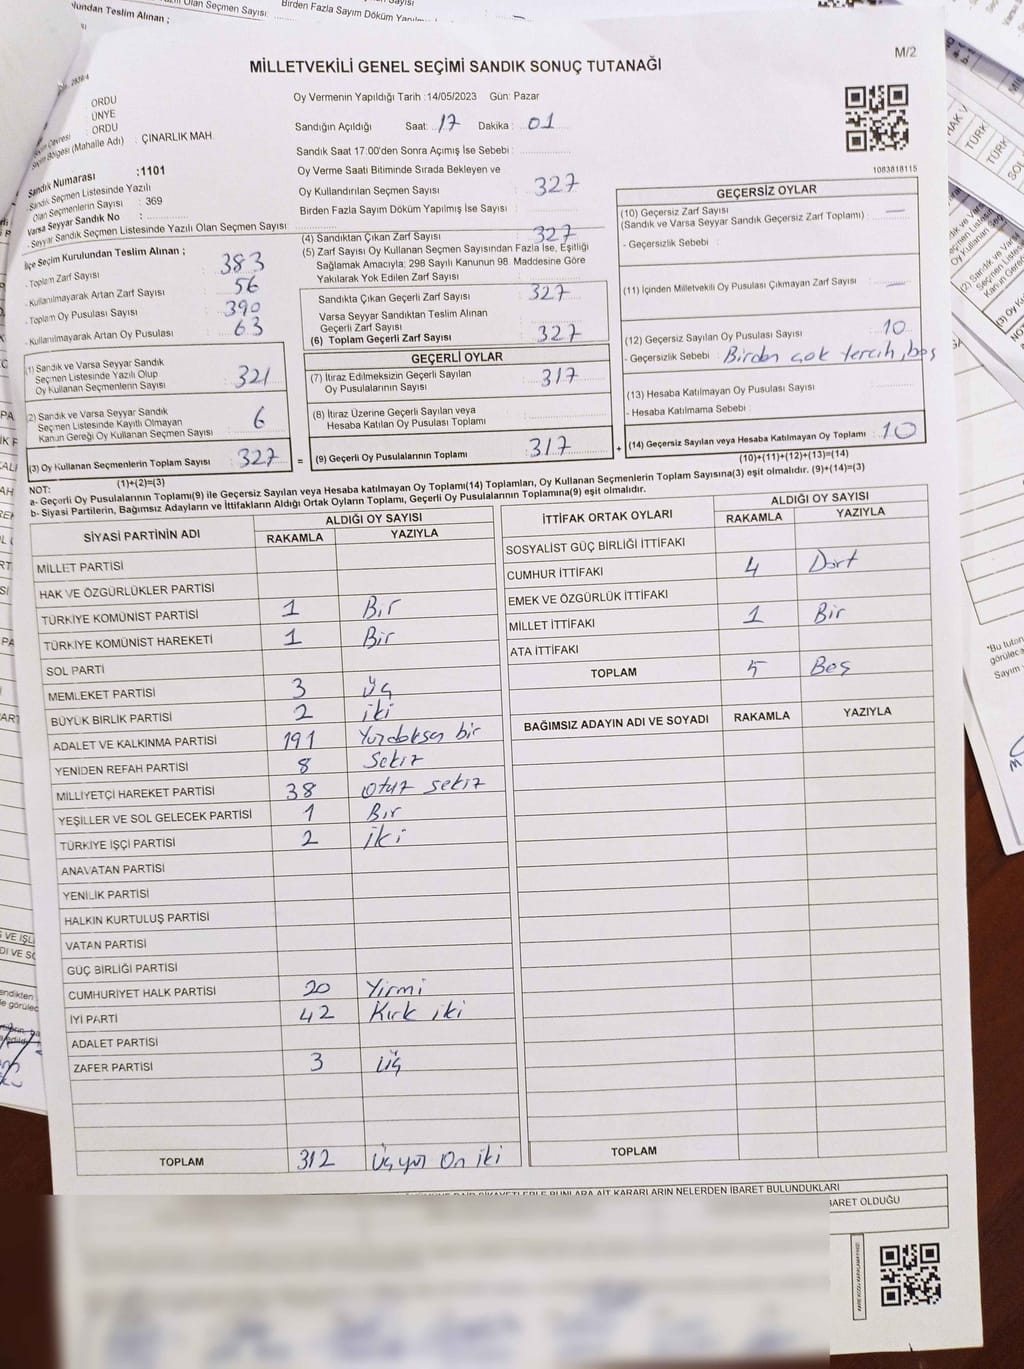 MİLLETVEKİLİ GENEL SEÇİMİ SANDIK SONUÇ TUTANAĞI
M/2
ORDU
ÜNYE
: ORDU
Seçim Bölgesi (Mahalle Adı) : ÇINARLIK MAH
Sandık Numarası :1101
Sandık Seçmen Listesinde Yazılı
Olan Seçmenlerin Sayısı : 369
Varsa Seyyar Sandık No :
- Seyyar Sandık Seçmen Listesinde Yazılı Olan Seçmen Sayısı :
Oy Vermenin Yapıldığı Tarih :14/05/2023 Gün: Pazar
Sandığın Açıldığı Saat: 17 Dakika : 01
Sandık Saat 17:00'den Sonra Açımış İse Sebebi :
Oy Verme Saati Bitiminde Sırada Bekleyen ve
Oy Kullandırılan Seçmen Sayısı : 327
Birden Fazla Sayım Döküm Yapılmış İse Sayısı :
1083818115
İlçe Seçim Kurulundan Teslim Alınan ;
- Toplam Zarf Sayısı : 383
- Kullanılmayarak Artan Zarf Sayısı : 56
- Toplam Oy Pusulası Sayısı : 390
- Kullanılmayarak Artan Oy Pusulası : 63
(1) Sandık ve Varsa Seyyar Sandık
Seçmen Listesinde Yazılı Olup
Oy Kullanan Seçmenlerin Sayısı : 321
(2) Sandık ve Varsa Seyyar Sandık
Seçmen Listesinde Kayıtlı Olmayan
Kanun Gereği Oy Kullanan Seçmen Sayısı : 6
(3) Oy Kullanan Seçmenlerin Toplam Sayısı : 327
(1)+(2)=(3)
(4) Sandıktan Çıkan Zarf Sayısı : 327
(5) Zarf Sayısı Oy Kullanan Seçmen Sayısından Fazla İse, Eşitliği
Sağlamak Amacıyla; 298 Sayılı Kanunun 98. Maddesine Göre
Yakılarak Yok Edilen Zarf Sayısı :
Sandıkta Çıkan Geçerli Zarf Sayısı : 327
Varsa Seyyar Sandıktan Teslim Alınan
Geçerli Zarf Sayısı :
(6) Toplam Geçerli Zarf Sayısı : 327
GEÇERLİ OYLAR
(7) İtiraz Edilmeksizin Geçerli Sayılan
Oy Pusulalarının Sayısı : 317
(8) İtiraz Üzerine Geçerli Sayılan veya
Hesaba Katılan Oy Pusulası Toplamı :
= (9) Geçerli Oy Pusulalarının Toplamı : 317 +
GEÇERSİZ OYLAR
(10) Geçersiz Zarf Sayısı
(Sandık ve Varsa Seyyar Sandık Geçersiz Zarf Toplamı) : —
- Geçersizlik Sebebi :
(11) İçinden Milletvekili Oy Pusulası Çıkmayan Zarf Sayısı : —
(12) Geçersiz Sayılan Oy Pusulası Sayısı : 10
- Geçersizlik Sebebi : Birden çok tercih, boş
(13) Hesaba Katılmayan Oy Pusulası Sayısı :
- Hesaba Katılmama Sebebi :
(14) Geçersiz Sayılan veya Hesaba Katılmayan Oy Toplamı : 10
(10)+(11)+(12)+(13)=(14)
NOT:
a- Geçerli Oy Pusulalarının Toplamı(9) ile Geçersiz Sayılan veya Hesaba katılmayan Oy Toplamı(14) Toplamları, Oy Kullanan Seçmenlerin Toplam Sayısına(3) eşit olmalıdır. (9)+(14)=(3)
b- Siyasi Partilerin, Bağımsız Adayların ve İttifakların Aldığı Ortak Oyların Toplamı, Geçerli Oy Pusulalarının Toplamına(9) eşit olmalıdır.
SİYASİ PARTİNİN ADI ALDIĞI OY SAYISI
RAKAMLA YAZIYLA
MİLLET PARTİSİ
HAK VE ÖZGÜRLÜKLER PARTİSİ
TÜRKİYE KOMÜNİST PARTİSİ 1 Bir
TÜRKİYE KOMÜNİST HAREKETİ 1 Bir
SOL PARTİ
MEMLEKET PARTİSİ 3 Üç
BÜYÜK BİRLİK PARTİSİ 2 iki
ADALET VE KALKINMA PARTİSİ 191 Yüzdoksan bir
YENİDEN REFAH PARTİSİ 8 Sekiz
MİLLİYETÇİ HAREKET PARTİSİ 38 otuz sekiz
YEŞİLLER VE SOL GELECEK PARTİSİ 1 Bir
TÜRKİYE İŞÇİ PARTİSİ 2 iki
ANAVATAN PARTİSİ
YENİLİK PARTİSİ
HALKIN KURTULUŞ PARTİSİ
VATAN PARTİSİ
GÜÇ BİRLİĞİ PARTİSİ
CUMHURİYET HALK PARTİSİ 20 Yirmi
İYİ PARTİ 42 Kırk iki
ADALET PARTİSİ
ZAFER PARTİSİ 3 Üç
TOPLAM 312 Üçyüz On iki
İTTİFAK ORTAK OYLARI ALDIĞI OY SAYISI
RAKAMLA YAZIYLA
SOSYALİST GÜÇ BİRLİĞİ İTTİFAKI
CUMHUR İTTİFAKI 4 Dört
EMEK VE ÖZGÜRLÜK İTTİFAKI
MİLLET İTTİFAKI 1 Bir
ATA İTTİFAKI
TOPLAM 5 Beş
BAĞIMSIZ ADAYIN ADI VE SOYADI RAKAMLA YAZIYLA
TOPLAM
KARARLARIN NELERDEN İBARET BULUNDUKLARI
BARET OLDUĞU